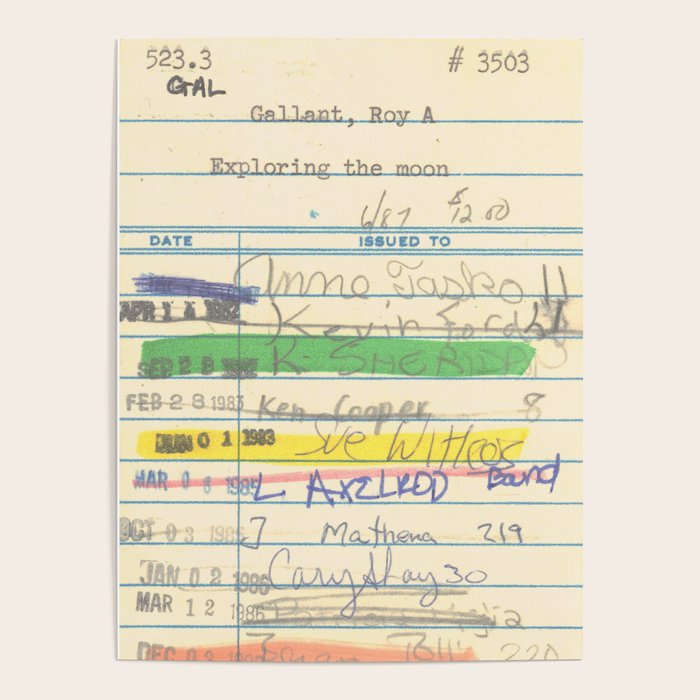 523.3 # 3503
GAL
Gallant, Roy A
Exploring the moon
6/87 $12.00
DATE ISSUED TO
Anne Tasko 11
APR 14 1982 Kevin Ford
SEP 28 K. SHERIDAN
FEB 28 1983 Ken Cooper 8
JUN 01 1983 Sue Witcos
MAR 06 1985 L AXELROD Band
OCT 03 1985 J Mathena 219
JAN 02 1986 Cary Shay 30
MAR 12 1986
DEC 02 220